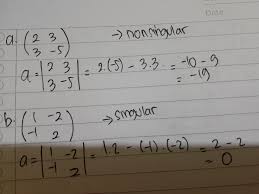 Date
a. (2 3
3 -5) → nonsingular
a = |2 3
3 -5| = 2.(-5) - 3.3 = -10 - 9
= -19
b. (1 -2
-1 2) → singular
a = |1 -2
-1 2| = 1.2 - (-1).(-2) = 2 - 2
= 0